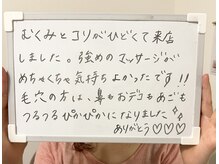 むくみとコリがひどくて来店
しました。強めのマッサージが
めちゃくちゃ気持ちよかったです!!
毛穴の方は、鼻もおデコもあごも
つるつるぴかぴかになりました
ありがとう♡♡♡